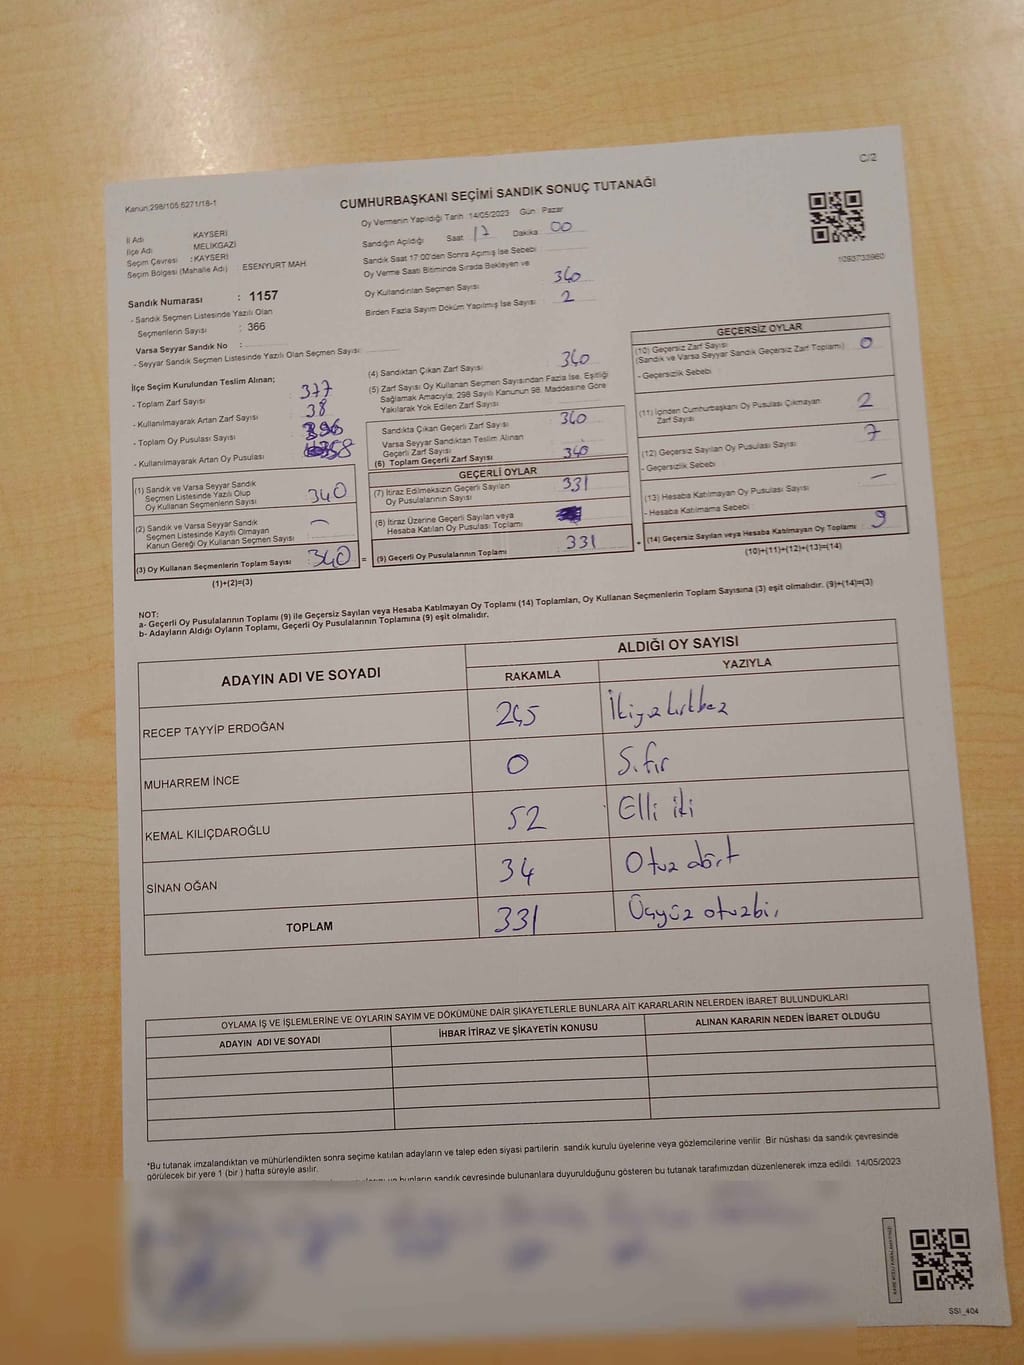 C/2
Kanun:298/105,6271/18-1
CUMHURBAŞKANI SEÇİMİ SANDIK SONUÇ TUTANAĞI
Oy Vermenin Yapıldığı Tarih 14/05/2023 Gün: Pazar
Sandığın Açıldığı Saat 17 Dakika 00
Sandık Saat 17:00'den Sonra Açımış İse Sebebi
Oy Verme Saati Bitiminde Sırada Bekleyen ve
Oy Kullandırılan Seçmen Sayısı 340
Birden Fazla Sayım Döküm Yapılmış İse Sayısı 2
1093733960
İl Adı : KAYSERİ
İlçe Adı : MELİKGAZİ
Seçim Çevresi : KAYSERİ
Seçim Bölgesi (Mahalle Adı) ESENYURT MAH.
Sandık Numarası : 1157
- Sandık Seçmen Listesinde Yazılı Olan
Seçmenlerin Sayısı : 366
Varsa Seyyar Sandık No :
- Seyyar Sandık Seçmen Listesinde Yazılı Olan Seçmen Sayısı:
İlçe Seçim Kurulundan Teslim Alınan;
- Toplam Zarf Sayısı 377
- Kullanılmayarak Artan Zarf Sayısı 38
- Toplam Oy Pusulası Sayısı
- Kullanılmayarak Artan Oy Pusulası
(1) Sandık ve Varsa Seyyar Sandık
Seçmen Listesinde Yazılı Olup
Oy Kullanan Seçmenlerin Sayısı 340
(2) Sandık ve Varsa Seyyar Sandık
Seçmen Listesinde Kayıtlı Olmayan
Kanun Gereği Oy Kullanan Seçmen Sayısı —
(3) Oy Kullanan Seçmenlerin Toplam Sayısı 340 =
(1)+(2)=(3)
(4) Sandıktan Çıkan Zarf Sayısı 340
(5) Zarf Sayısı Oy Kullanan Seçmen Sayısından Fazla İse, Eşitliği
Sağlamak Amacıyla; 298 Sayılı Kanunun 98. Maddesine Göre
Yakılarak Yok Edilen Zarf Sayısı
Sandıkta Çıkan Geçerli Zarf Sayısı 340
Varsa Seyyar Sandıktan Teslim Alınan
Geçerli Zarf Sayısı
(6) Toplam Geçerli Zarf Sayısı 340
GEÇERLİ OYLAR
(7) İtiraz Edilmeksizin Geçerli Sayılan
Oy Pusulalarının Sayısı 331
(8) İtiraz Üzerine Geçerli Sayılan veya
Hesaba Katılan Oy Pusulası Toplamı
(9) Geçerli Oy Pusulalarının Toplamı 331 +
GEÇERSİZ OYLAR
(10) Geçersiz Zarf Sayısı 0
(Sandık ve Varsa Seyyar Sandık Geçersiz Zarf Toplamı)
- Geçersizlik Sebebi
(11) İçinden Cumhurbaşkanı Oy Pusulası Çıkmayan
Zarf Sayısı 2
(12) Geçersiz Sayılan Oy Pusulası Sayısı 7
- Geçersizlik Sebebi
(13) Hesaba Katılmayan Oy Pusulası Sayısı —
- Hesaba Katılmama Sebebi
(14) Geçersiz Sayılan veya Hesaba Katılmayan Oy Toplamı 9
(10)+(11)+(12)+(13)=(14)
NOT:
a- Geçerli Oy Pusulalarının Toplamı (9) ile Geçersiz Sayılan veya Hesaba Katılmayan Oy Toplamı (14) Toplamları, Oy Kullanan Seçmenlerin Toplam Sayısına (3) eşit olmalıdır. (9)+(14)=(3)
b- Adayların Aldığı Oyların Toplamı, Geçerli Oy Pusulalarının Toplamına (9) eşit olmalıdır.
ADAYIN ADI VE SOYADI ALDIĞI OY SAYISI
RAKAMLA YAZIYLA
RECEP TAYYİP ERDOĞAN 245 İkiyüzkırkbeş
MUHARREM İNCE 0 Sıfır
KEMAL KILIÇDAROĞLU 52 Elli iki
SİNAN OĞAN 34 Otuz dört
TOPLAM 331 Üçyüz otuzbir
OYLAMA İŞ VE İŞLEMLERİNE VE OYLARIN SAYIM VE DÖKÜMÜNE DAİR ŞİKAYETLERLE BUNLARA AİT KARARLARIN NELERDEN İBARET BULUNDUKLARI
ADAYIN ADI VE SOYADI İHBAR İTİRAZ VE ŞİKAYETİN KONUSU ALINAN KARARIN NEDEN İBARET OLDUĞU
*Bu tutanak imzalandıktan ve mühürlendikten sonra seçime katılan adayların ve talep eden siyasi partilerin sandık kurulu üyelerine veya gözlemcilerine verilir. Bir nüshası da sandık çevresinde
görülecek bir yere 1 (bir ) hafta süreyle asılır.
bunların sandık çevresinde bulunanlara duyurulduğunu gösteren bu tutanak tarafımızdan düzenlenerek imza edildi. 14/05/2023
SSI_404